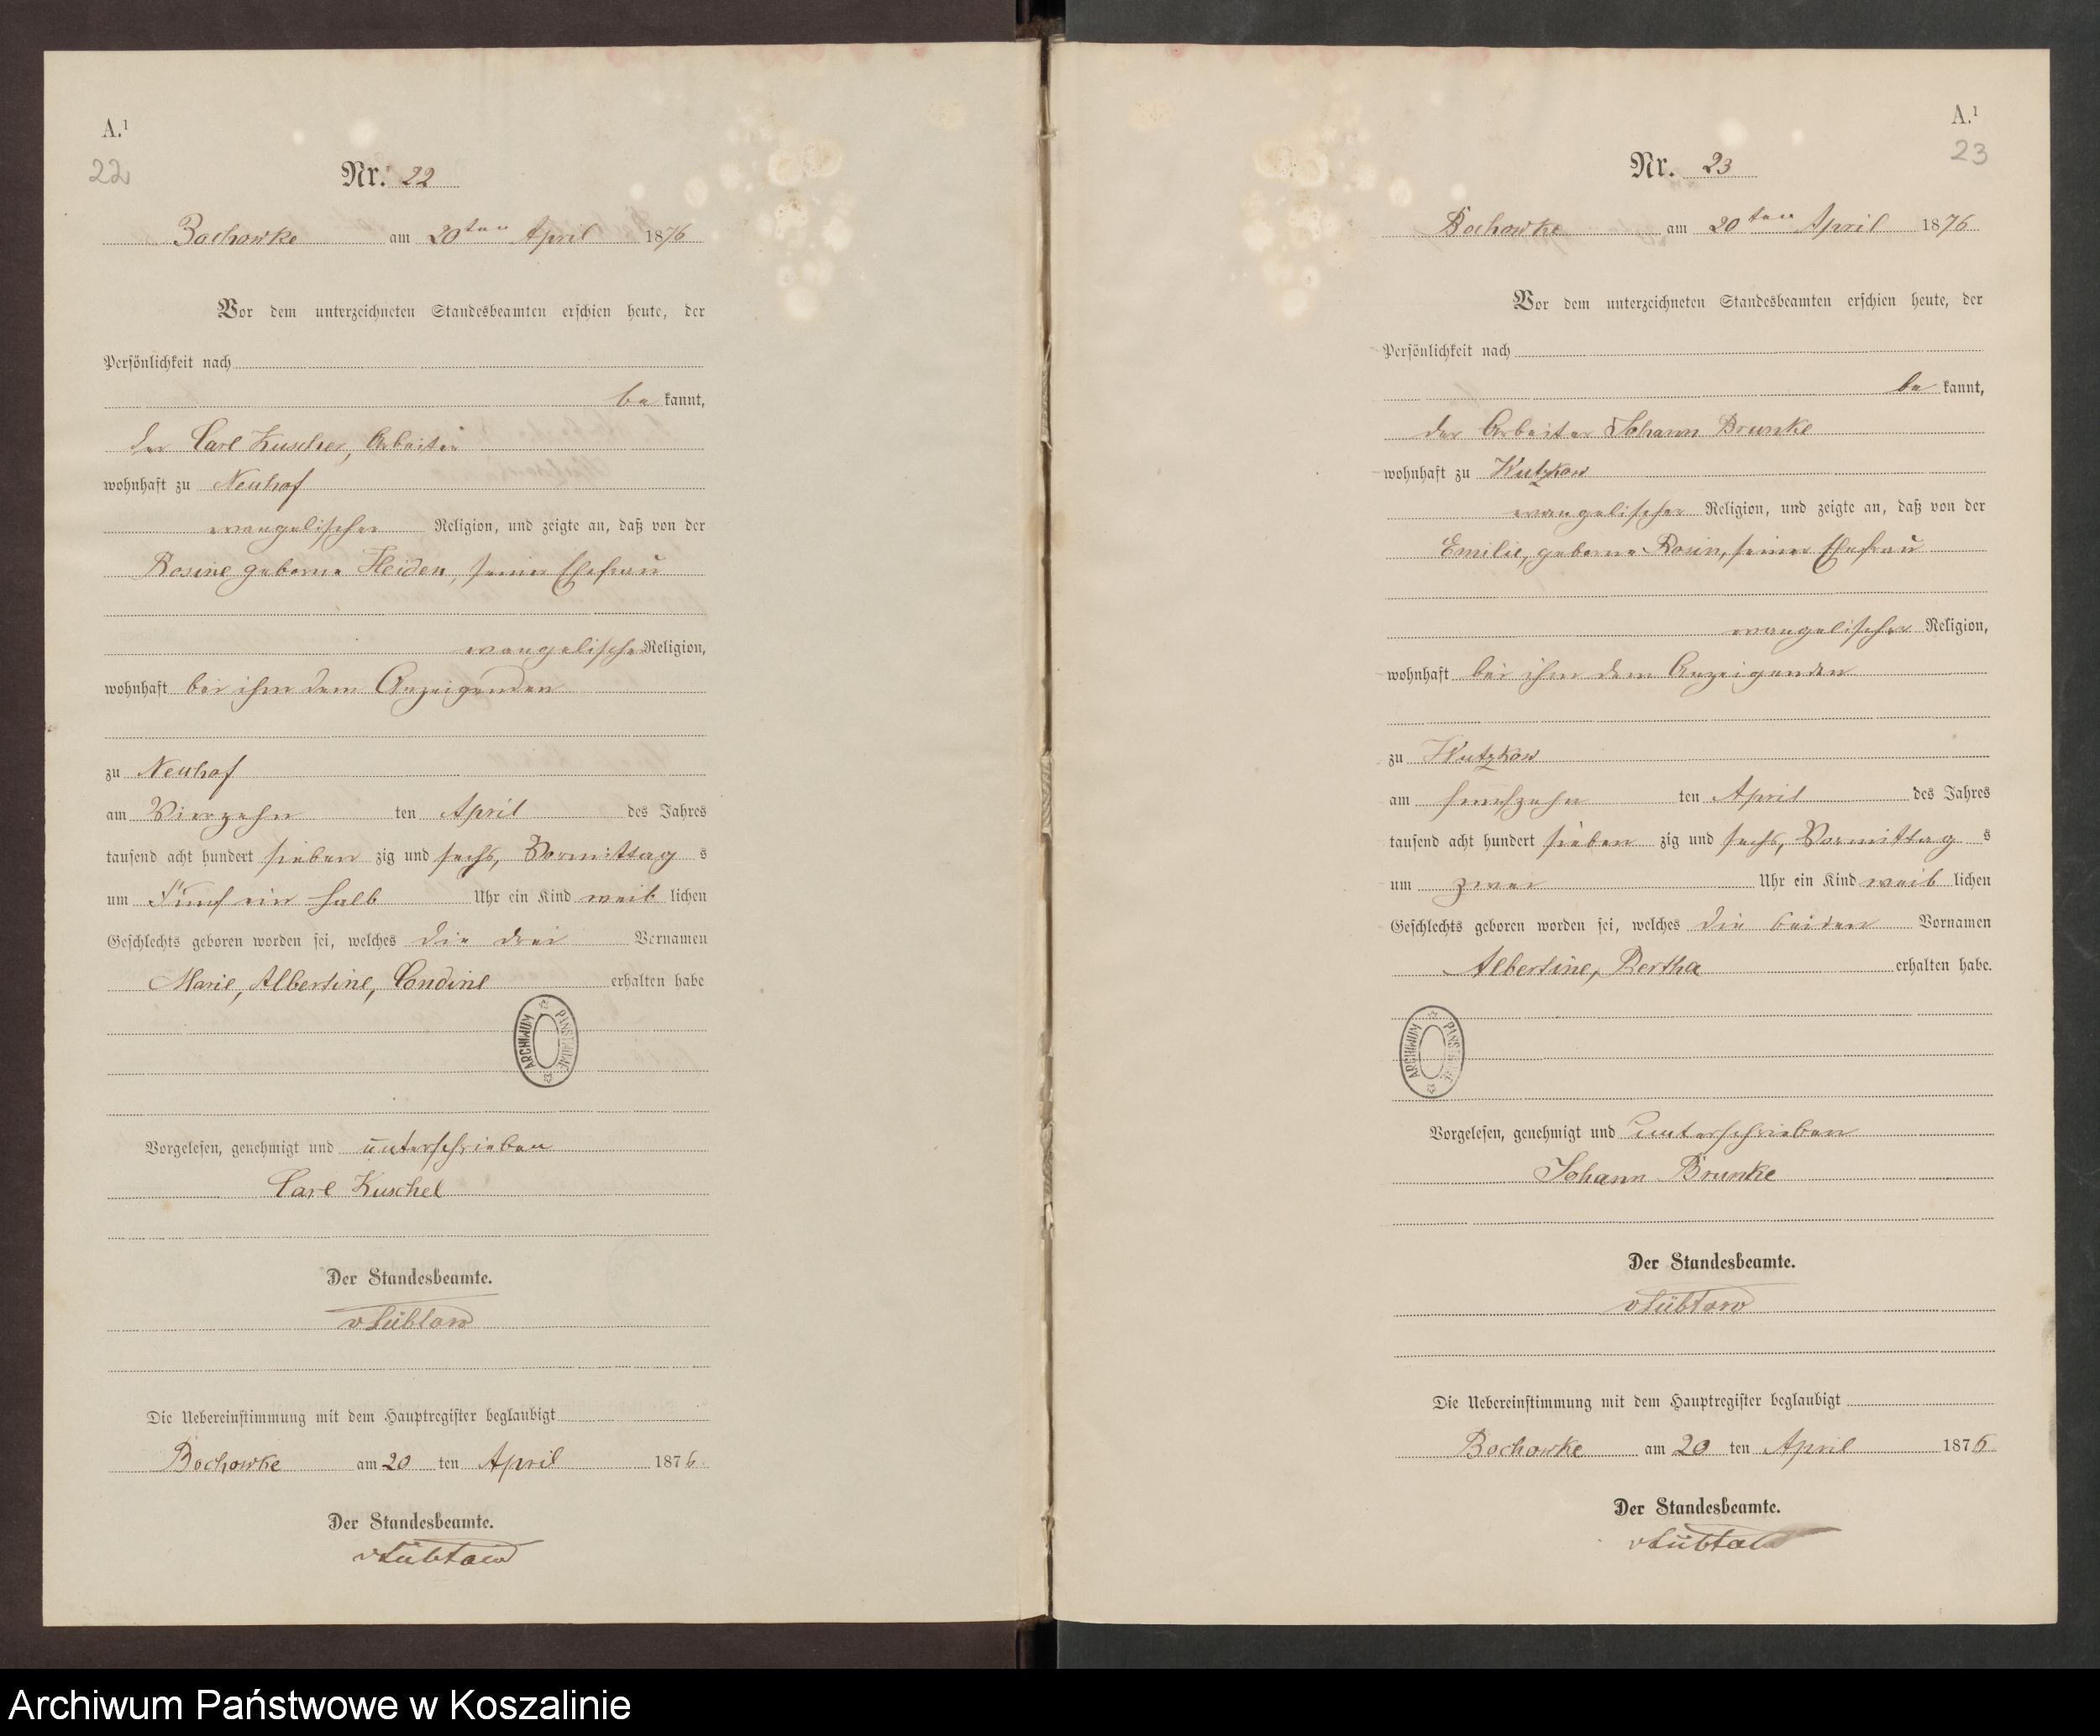 A.¹
22
Nr. 22
Bochowke am 20ten April 1876
Vor dem unterzeichneten Standesbeamten erschien heute, der
Persönlichkeit nach
be kannt,
der Carl Kuschel, Arbeiter
wohnhaft zu Neuhof
evangelischer Religion, und zeigte an, daß von der
Rosine geborne Heiden, seiner Ehefrau
evangelischer Religion,
wohnhaft bei ihm dem Anzeigenden
zu Neuhof
am Vierzehn ten April des Jahres
tausend acht hundert sieben zig und sechs, Vormittag s
um Fünf ein halb Uhr ein Kind weib lichen
Geschlechts geboren worden sei, welches die drei Vornamen
Marie, Albertine, Condine erhalten habe
ARCHIWUM PAŃSTWOWE
Vorgelesen, genehmigt und unterschrieben
Carl Kuschel
Der Standesbeamte.
vLübtow
Die Uebereinstimmung mit dem Hauptregister beglaubigt
Bochowke am 20 ten April 1876.
Der Standesbeamte.
vLübtow
A.¹
23
Nr. 23
Bochowke am 20ten April 1876
Vor dem unterzeichneten Standesbeamten erschien heute, der
Persönlichkeit nach
be kannt,
der Arbeiter Johann Brunke
wohnhaft zu Wutzkow
evangelischer Religion, und zeigte an, daß von der
Emilie, geborne Rosin, seiner Ehefrau
evangelischer Religion,
wohnhaft bei ihm dem Anzeigenden
zu Wutzkow
am fünfzehn ten April des Jahres
tausend acht hundert sieben zig und sechs, Vormittag s
um zwei Uhr ein Kind weib lichen
Geschlechts geboren worden sei, welches die beiden Vornamen
Albertine, Bertha erhalten habe.
ARCHIWUM PAŃSTWOWE
Vorgelesen, genehmigt und unterschrieben
Johann Brunke
Der Standesbeamte.
vLübtow
Die Uebereinstimmung mit dem Hauptregister beglaubigt
Bochowke am 20 ten April 1876
Der Standesbeamte.
vLübtow
Archiwum Państwowe w Koszalinie